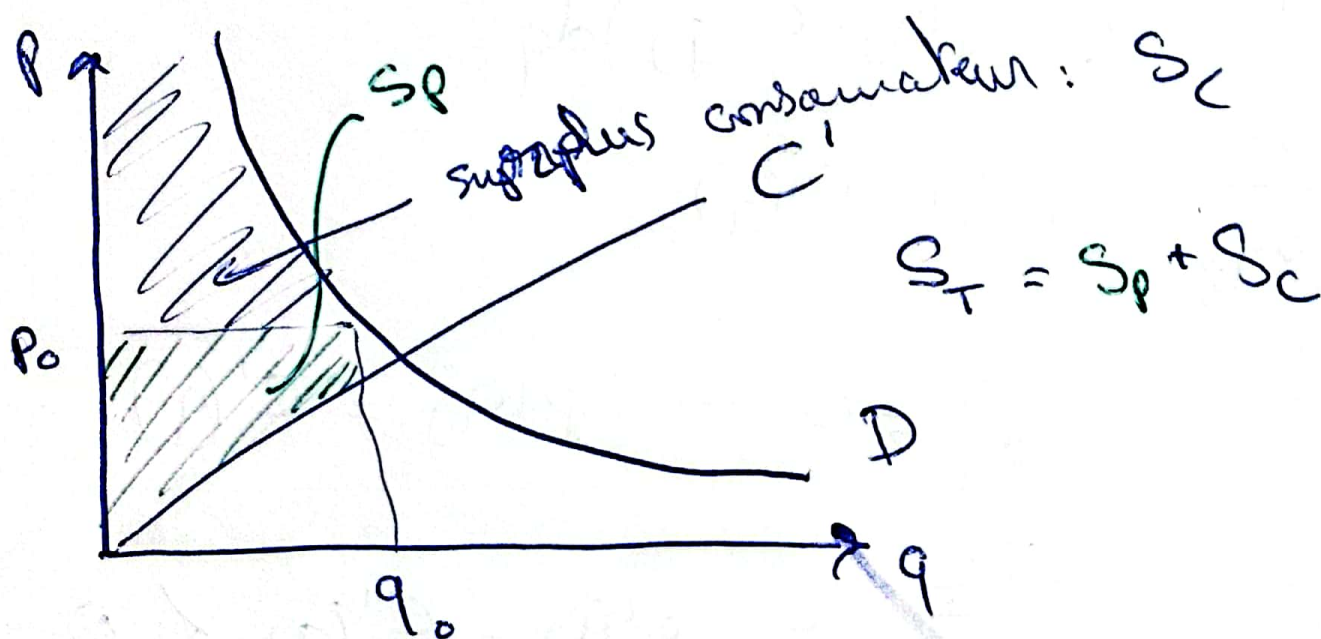 P
Sp
surplus consomateur : Sc
C'
S_T = Sp + Sc
Po
D
q
qo